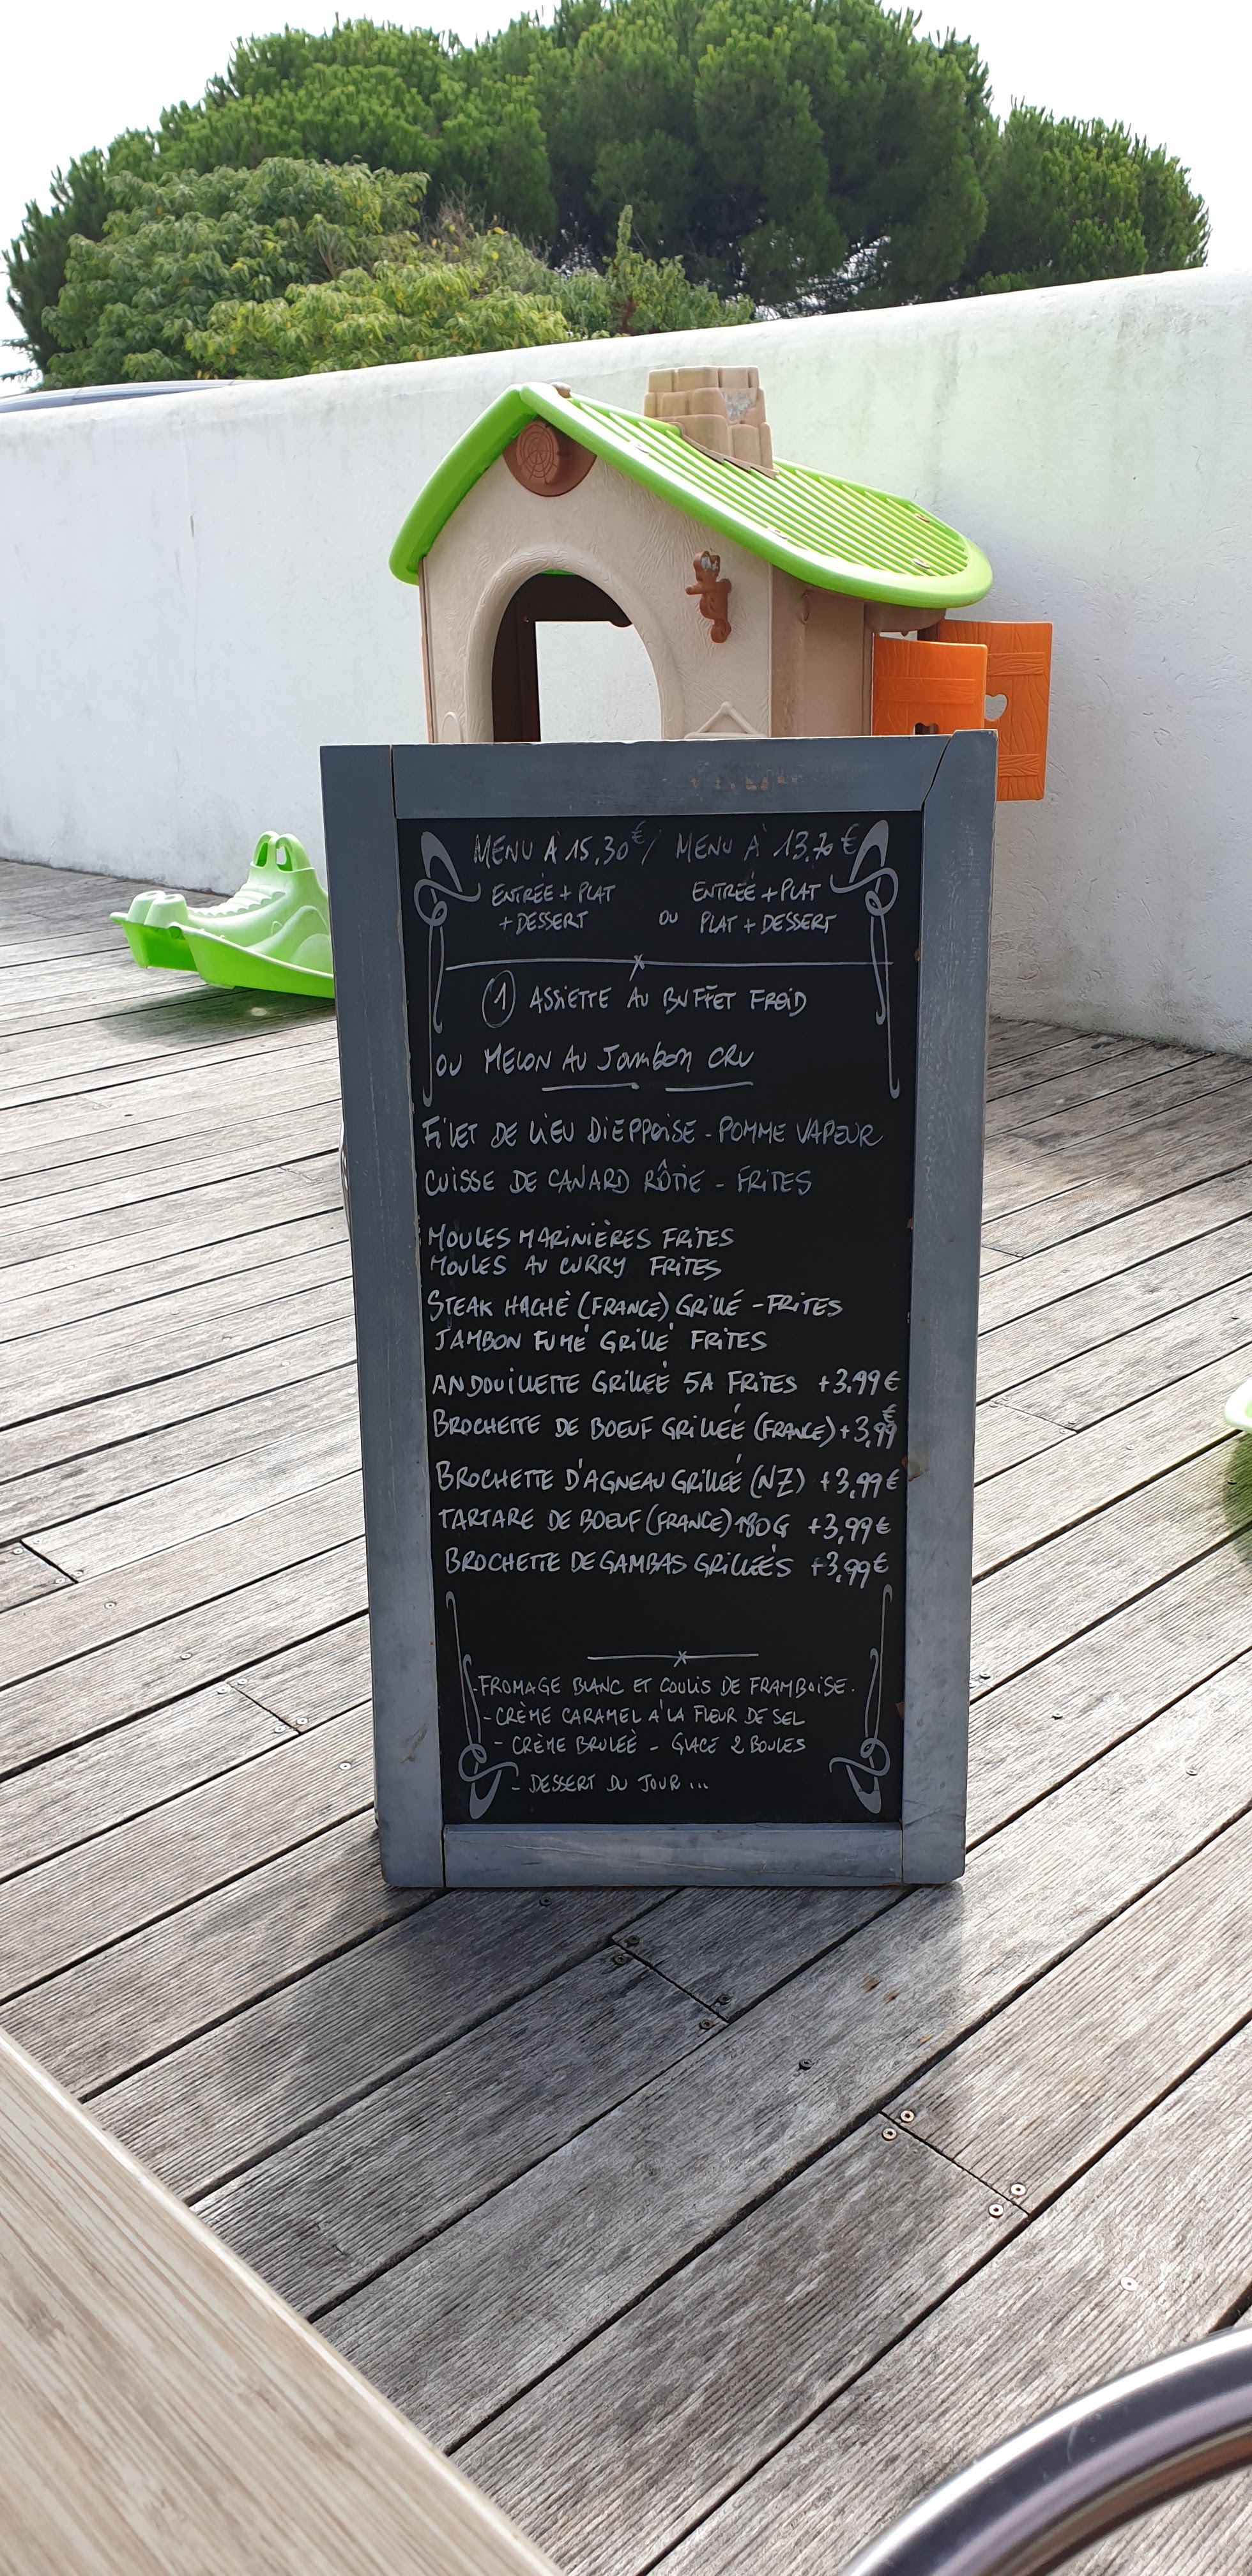 MENU À 15,30€ / MENU À 13,70€
ENTRÉE + PLAT ENTRÉE + PLAT
+ DESSERT OU PLAT + DESSERT
1 ASSIETTE AU BUFFET FROID
OU MELON AU JAMBON CRU
FILET DE LIEU DIEPPOISE - POMME VAPEUR
CUISSE DE CANARD RÔTIE - FRITES
MOULES MARINIÈRES FRITES
MOULES AU CURRY FRITES
STEAK HACHÉ (FRANCE) GRILLÉ - FRITES
JAMBON FUMÉ GRILLÉ FRITES
ANDOUILLETTE GRILLÉE 5A FRITES +3.99€
BROCHETTE DE BOEUF GRILLÉE (FRANCE) +3,99€
BROCHETTE D'AGNEAU GRILLÉE (NZ) +3,99€
TARTARE DE BOEUF (FRANCE) 180G +3,99€
BROCHETTE DE GAMBAS GRILLÉES +3,99€
-FROMAGE BLANC ET COULIS DE FRAMBOISE.
- CRÈME CARAMEL À LA FLEUR DE SEL
- CRÈME BRULÉE - GLACE 2 BOULES
- DESSERT DU JOUR ...